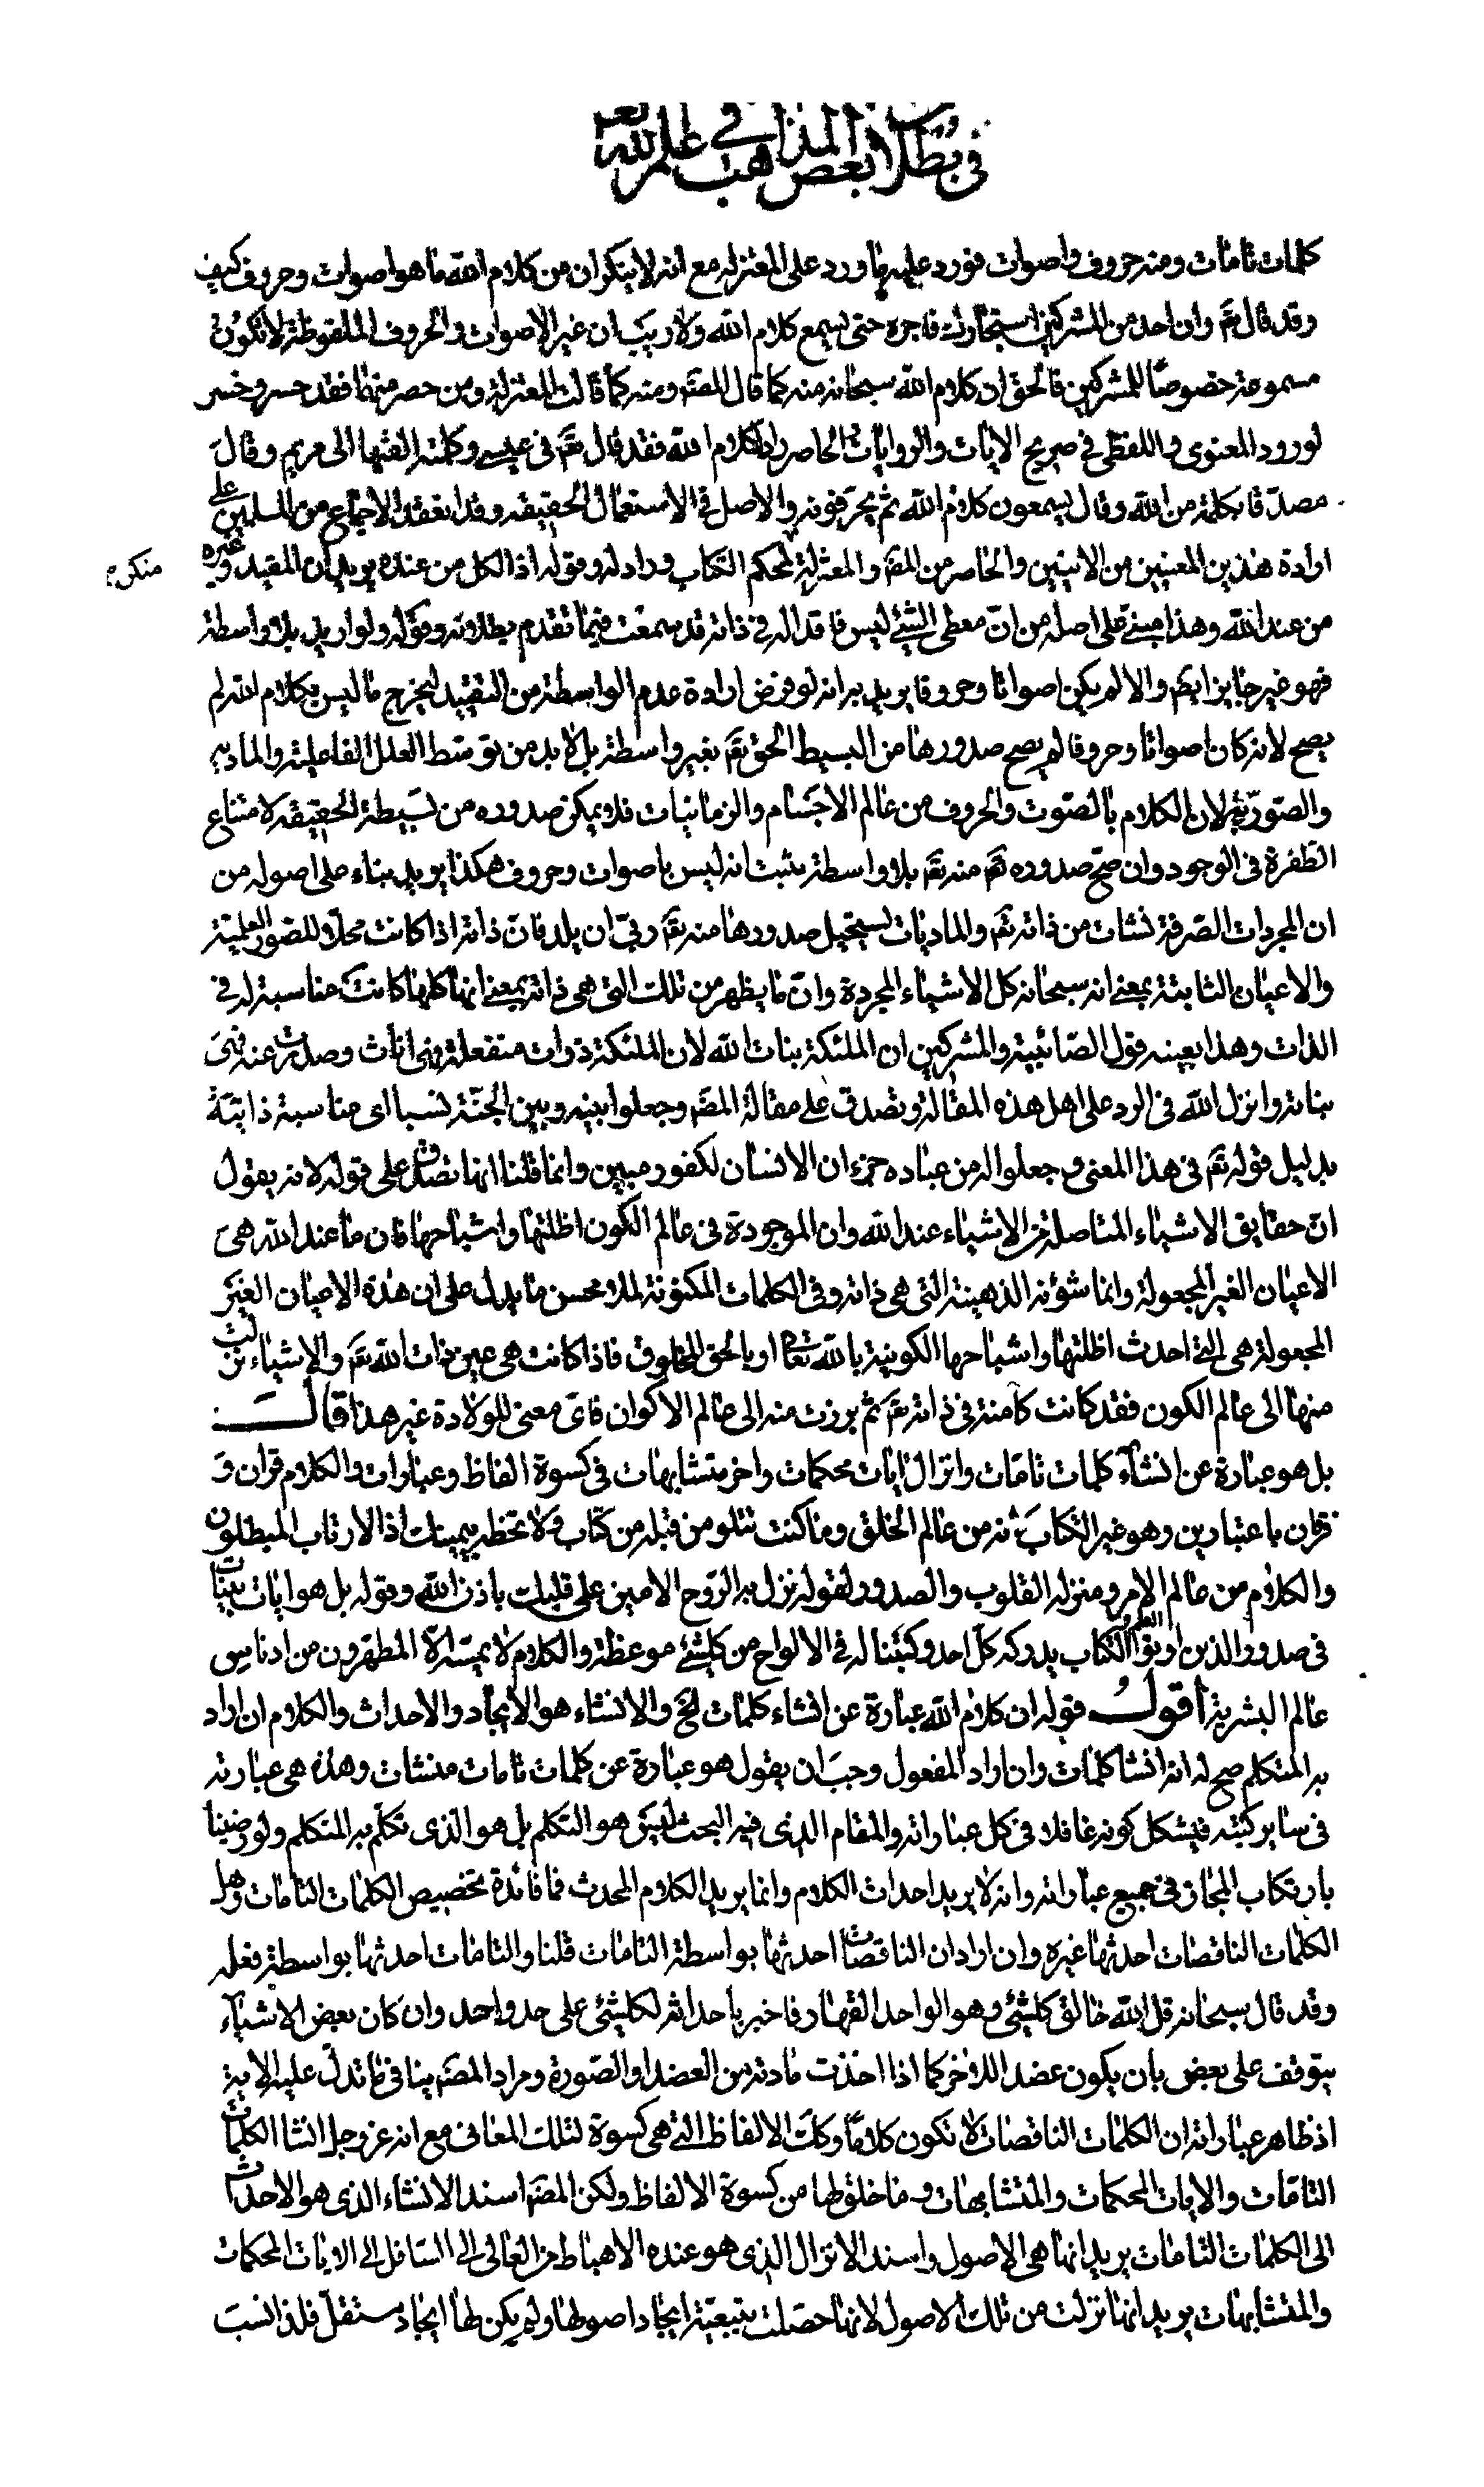 في بطلان بعض المذاهب في علم الله تعه
كلمات تامات ومنه حروف واصوات فورد عليه ما ورد على المعتزله مع انه لا ينكر ان من كلام الله ما هو اصوات وحروف كيف
وقد قال تعَ وان احد من المشركين استجارك فاجره حتى يسمع كلام الله ولا ريب ان غير الاصوات والحروف الملفوظة لا تكون
مسموعة خصوصًا للمشركين فالحق ان كلام الله سبحانه منه كما قال المصَ ومنه كما قالت المعتزلة ومن حصر منهما فقد حسر وخسر
لورود المعنوى واللفظى فى صريح الايات والروايات الحاصر راد لكلام الله فقد قال تعَ فى عيسى وكلمته القيها الى مريم وقال
مصدّقا بكلمة من الله وقال يسمعون كلام الله ثم يحرّفونه والاصل فى الاستعمال الحقيقه وقد انعقد الاجماع من المسلمين على
ارادة هذين المعنيين من الاثنين والحاصر من المصَ والمعتزلة لمحكم الكتاب وراد له وقوله اذ الكل من عنده يريد ان المقيد وغيره منكر م
من عند الله وهذا مبنىّ على اصله من انّ معطى الشئ ليس فاقدا له فى ذاته قد سمعت فيما تقدم بطلانه وقوله ولو اريد بلا واسطة
فهو غير جايز ايضَ والا لم يكن اصواتا وحروفا يريد به انه لو فرض ارادة عدم الواسطة من التقييد ليخرج ما ليس بكلام الله لم
يصح لانه كان اصواتا وحروفا لم يصح صدورها من البسيط الحق تعَ بغير واسطة بل لا بد من توسّط العلل الفاعلية والماديه
والصّوريّة لان الكلام بالصّوت والحروف من عالم الاجسام والزمانيات فلا يمكن صدوره من بسيطة الحقيقه لامتناع
الطفرة فى الوجود وان صحّ صدوره تعَ منه تعَ بلا واسطة يثبت انه ليس باصوات وحروف هكذا يريد بناء على اصوله من
ان المجردات الصّرفة نشات من ذاته تعَ والماديات يستحيل صدورها منه تعَ ربّى ان يلد فانّ ذاته اذا كانت محلّا للصّور العلمية
والاعيان الثابتة بمعنى انه سبحانه كل الاشياء المجردة وانّ ما يظهر من تلك التى هى ذاته بمعنى انها كلها كانت مناسبة له فى
الذات وهذا بعينه قول الصّائبية والمشركين ان الملئكة بنات الله لان الملئكة ذوات منفعلة فهى اناث وصدرت عنه فهى
بناته وانزل الله فى الرد على اهل هذه المقالة وتصدق على مقالة المصَ وجعلوا بينه وبين الجنّة نسبا اى مناسبة ذاتيّة
بدليل قوله تعَ فى هذا المعنى وجعلوا له من عباده جزء ان الانسان لكفور مبين وانما قلنا انها تصدق على قوله لانه يقول
انّ حقايق الاشياء المتاصلة من الاشياء عند الله وان الموجودة فى عالم الكون اظلتها واشباحها فان ما عند الله هى
الاعيان الغير المجعولة وانما شؤنه الذهينة التى هى ذاته وفى الكلمات المكنونة لملا محسن ما يدل على ان هذه الاعيان الغير
المجعولة هى التى احدث اظلتها واشباحها الكونية بالله تعالى او بالحق المخلوق فاذا كانت هى عين ذات الله تعَ والاشياء نزلت
منها الى عالم الكون فقد كانت كامنة فى ذاته تعَ ثم برزت منه الى عالم الاكوان فاىّ معنى للولادة غير هذا قالــــ
بل هو عبارة عن انشاء كلمات تامّات وانزال ايات محكمات واخر متشابهات فى كسوة الفاظ وعبارات والكلام قران وَ
فرقان باعتبارين وهو غير الكتاب لانه من عالم الخلق وما كنت تتلو من قبله من كتاب ولا تخطه بيمينك اذا لارتاب المبطلون
والكلام من عالم الامر ومنزله القلوب والصدور لقوله نزل به الرّوح الامين على قلبك باذن الله وقوله بل هو ايات بيّنات
فى صدور الذين اوتوا العلم والكتاب يدركه كل احد وكتبنا له فى الالواح من كلشئ موعظة والكلام لا يمسّه الّا المطهّرون من ادناس
عالم البشرية اقولــــ قوله ان كلام الله عبارة عن انشاء كلمات الخ والانشاء هو الايجاد والاحداث والكلام ان اراد
به المتكلم صح له انه انشا كلمات وان اراد المفعول وجب ان يقول هو عبارة عن كلمات تامات منشات وهذه هى عبارته
فى ساير كتبه فيشكل كونه غافلا فى كل عباراته والمقام الذى فيه البحث ليس هو التكلم بل هو الذى تكلّم به المتكلم ولو رضينا
بارتكاب المجاز فى جميع عباراته وانه لا يريد احداث الكلام وانما يريد الكلام المحدث فما فائدة تخصيص الكلمات التامات وهل
الكلمات الناقصات احدثها غيره وان اراد ان الناقصات احدثها بواسطة التامات قلنا والتامات احدثها بواسطة فعله
وقد قال سبحانه قل الله خالق كلشئ وهو الواحد القهار فاخبر باحداثه لكلشئ على حد واحد وان كان بعض الاشياء
يتوقف على بعض بان يكون عضد اللاخر كما اذا اخذت مادته من العضد او الصّورة ومراد المصَ ينافى ما تدلّ عليه الاية
اذ ظاهر عباراته ان الكلمات الناقصات لا تكون كلامًا وكل الالفاظ التى هى كسوة لتلك المعانى مع انه عز وجل انشا الكلمات
التامّات والايات المحكمات والمتشابهات وما خلق لها من كسوة الالفاظ ولكن المصَ اسند الانشاء الذى هو الاحداث
الى الكلمات التامات يريد انها هى الاصول واسند الانزال الذى هو عنده الاهباط من العالى الى السّافل الى الايات المحكمات
والمتشابهات يريد انها نزلت من تلك الاصول لانها حصلت بتبعيّة ايجاد اصولها ولم يكن لها ايجاد مستقلّ فلذا نسبَ